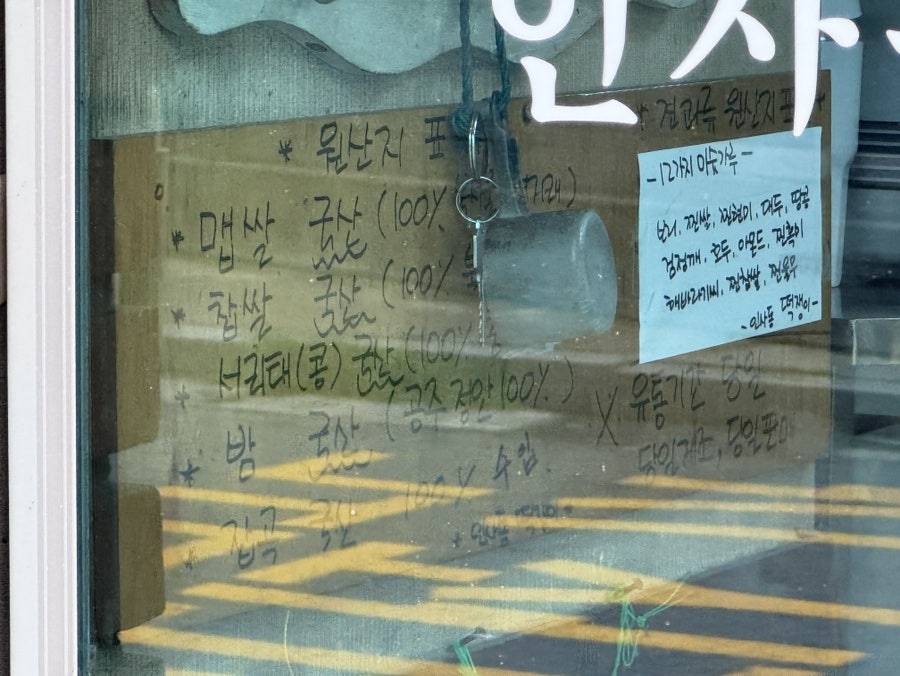 인사
* 원산지 표
* 맵쌀 국산 (100%
* 찹쌀 국산 (100%
서리태(콩) 국산 (100%
* 밤 국산 (공주 정안 100%)
* 잡곡 국산 100% 수입.
* 인사동 떡쟁이
* 견과류 원산지 표
-12가지 미숫가루-
보리, 찐쌀, 찐현미, 대두, 땅콩
검정깨, 호두, 아몬드, 찐흑미
해바라기씨, 찐찹쌀, 찐율무
-인사동 떡쟁이-
X 유통기간 당일
당일제조, 당일판매